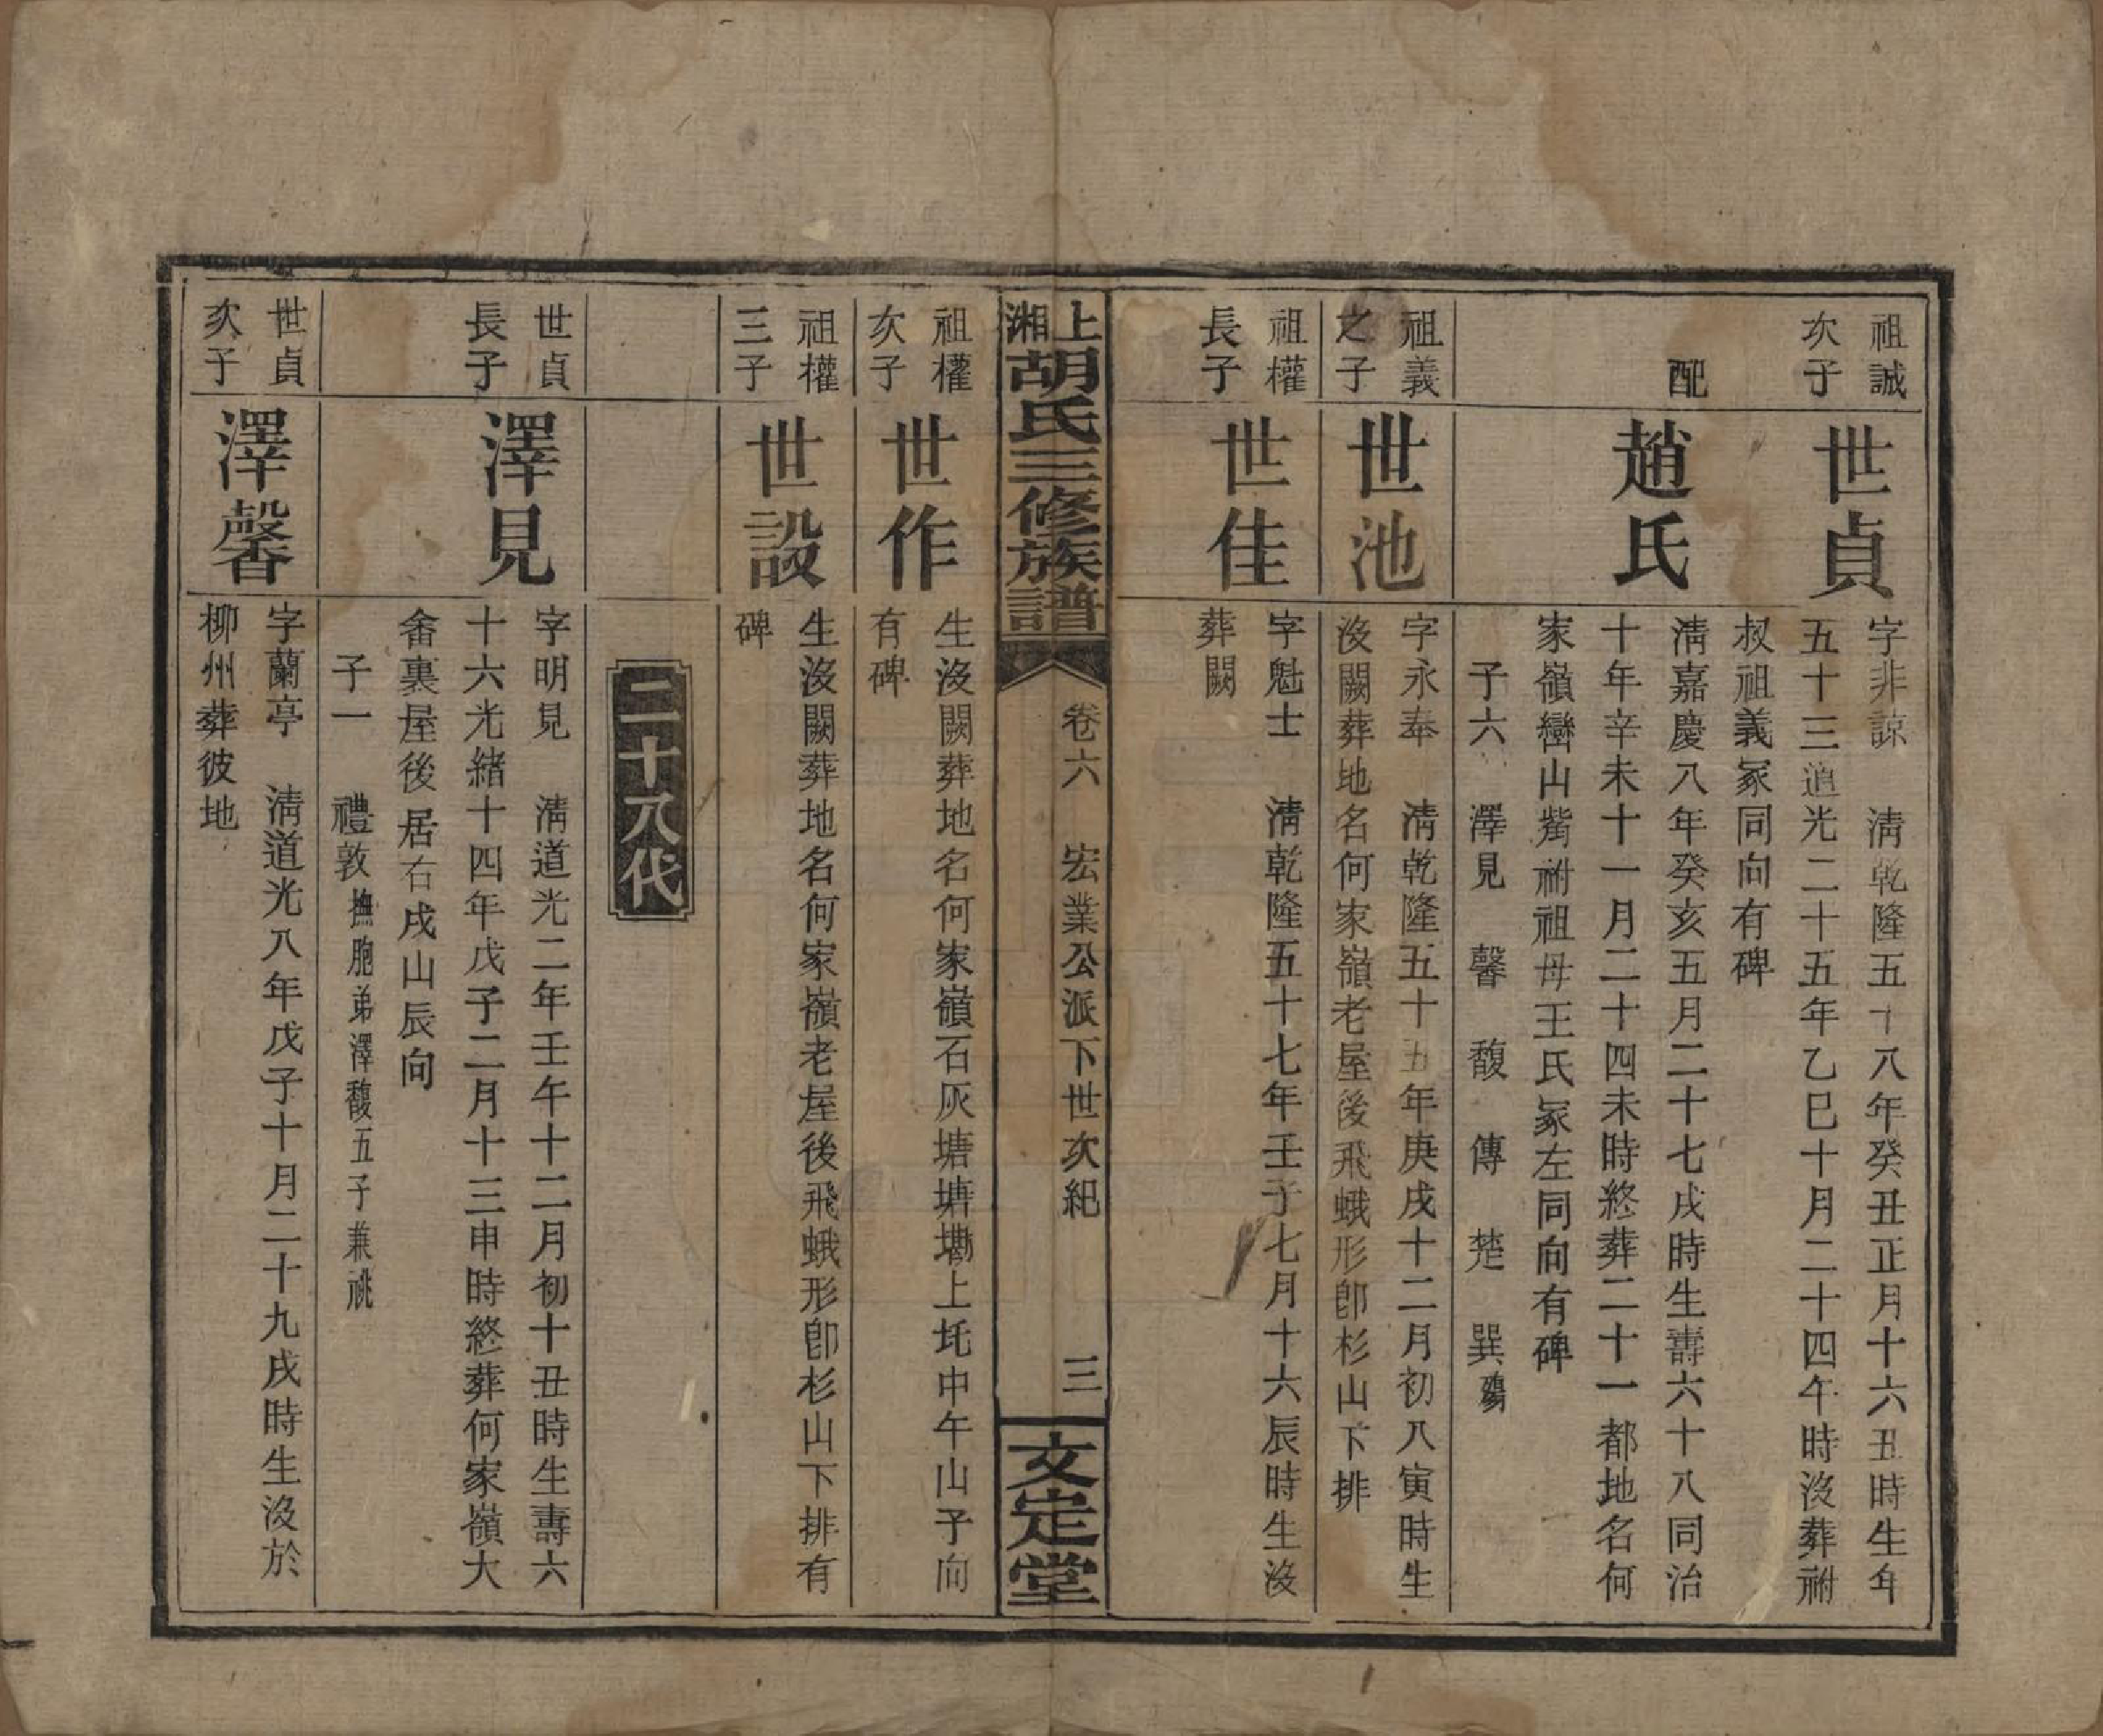 祖誠
次子
世貞
字非諒　清乾隆五十八年癸丑正月十六丑時生年
五十三道光二十五年乙巳十月二十四午時沒葬祔
叔祖義冢同向有碑
配
趙氏
清嘉慶八年癸亥五月二十七戌時生壽六十八同治
十年辛未十一月二十四未時終葬二十一都地名何
家嶺巒山觜祔祖母王氏冢左同向有碑
子六　澤見　馨　馥　傳　楚　巽殤
祖義
之子
世池
字永奉　清乾隆五十五年庚戌十二月初八寅時生
沒闕葬地名何家嶺老屋後飛蛾形卽杉山下排
祖權
長子
世佳
字魁士　清乾隆五十七年壬子七月十六辰時生沒
葬闕
上湘胡氏三修族譜
卷六　宏業公派下世次紀　三
文定堂
祖權
次子
世作
生沒闕葬地名何家嶺石灰塘塘墈上圫中午山子向
有碑
祖權
三子
世設
生沒闕葬地名何家嶺老屋後飛蛾形卽杉山下排有
碑
二十八代
世貞
長子
澤見
字明見　清道光二年壬午十二月初十丑時生壽六
十六光緒十四年戊子二月十三申時終葬何家嶺大
畬裏屋後居右戌山辰向
子一　禮敦撫胞弟澤馥五子兼祧
世貞
次子
澤馨
字蘭亭　清道光八年戊子十月二十九戌時生沒於
柳州葬彼地